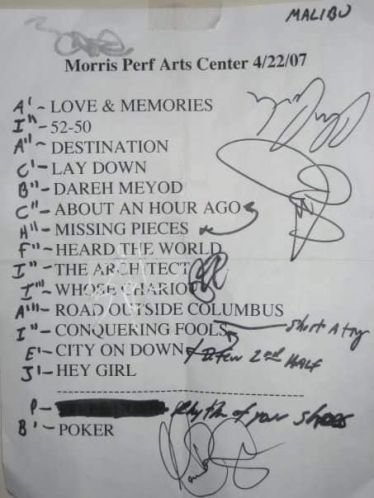 MALIBU
Morris Perf Arts Center 4/22/07
A' - LOVE & MEMORIES
I" - 52-50
A" - DESTINATION
C' - LAY DOWN
B" - DAREH MEYOD
C" - ABOUT AN HOUR AGO
H" - MISSING PIECES
F" - HEARD THE WORLD
I" - THE ARCHITECT
I'" - WHOSE CHARIOT
A"" - ROAD OUTSIDE COLUMBUS
I" - CONQUERING FOOLS - short A
E' - CITY ON DOWN 2nd HALF
J' - HEY GIRL
P - of your shoes
B' - POKER